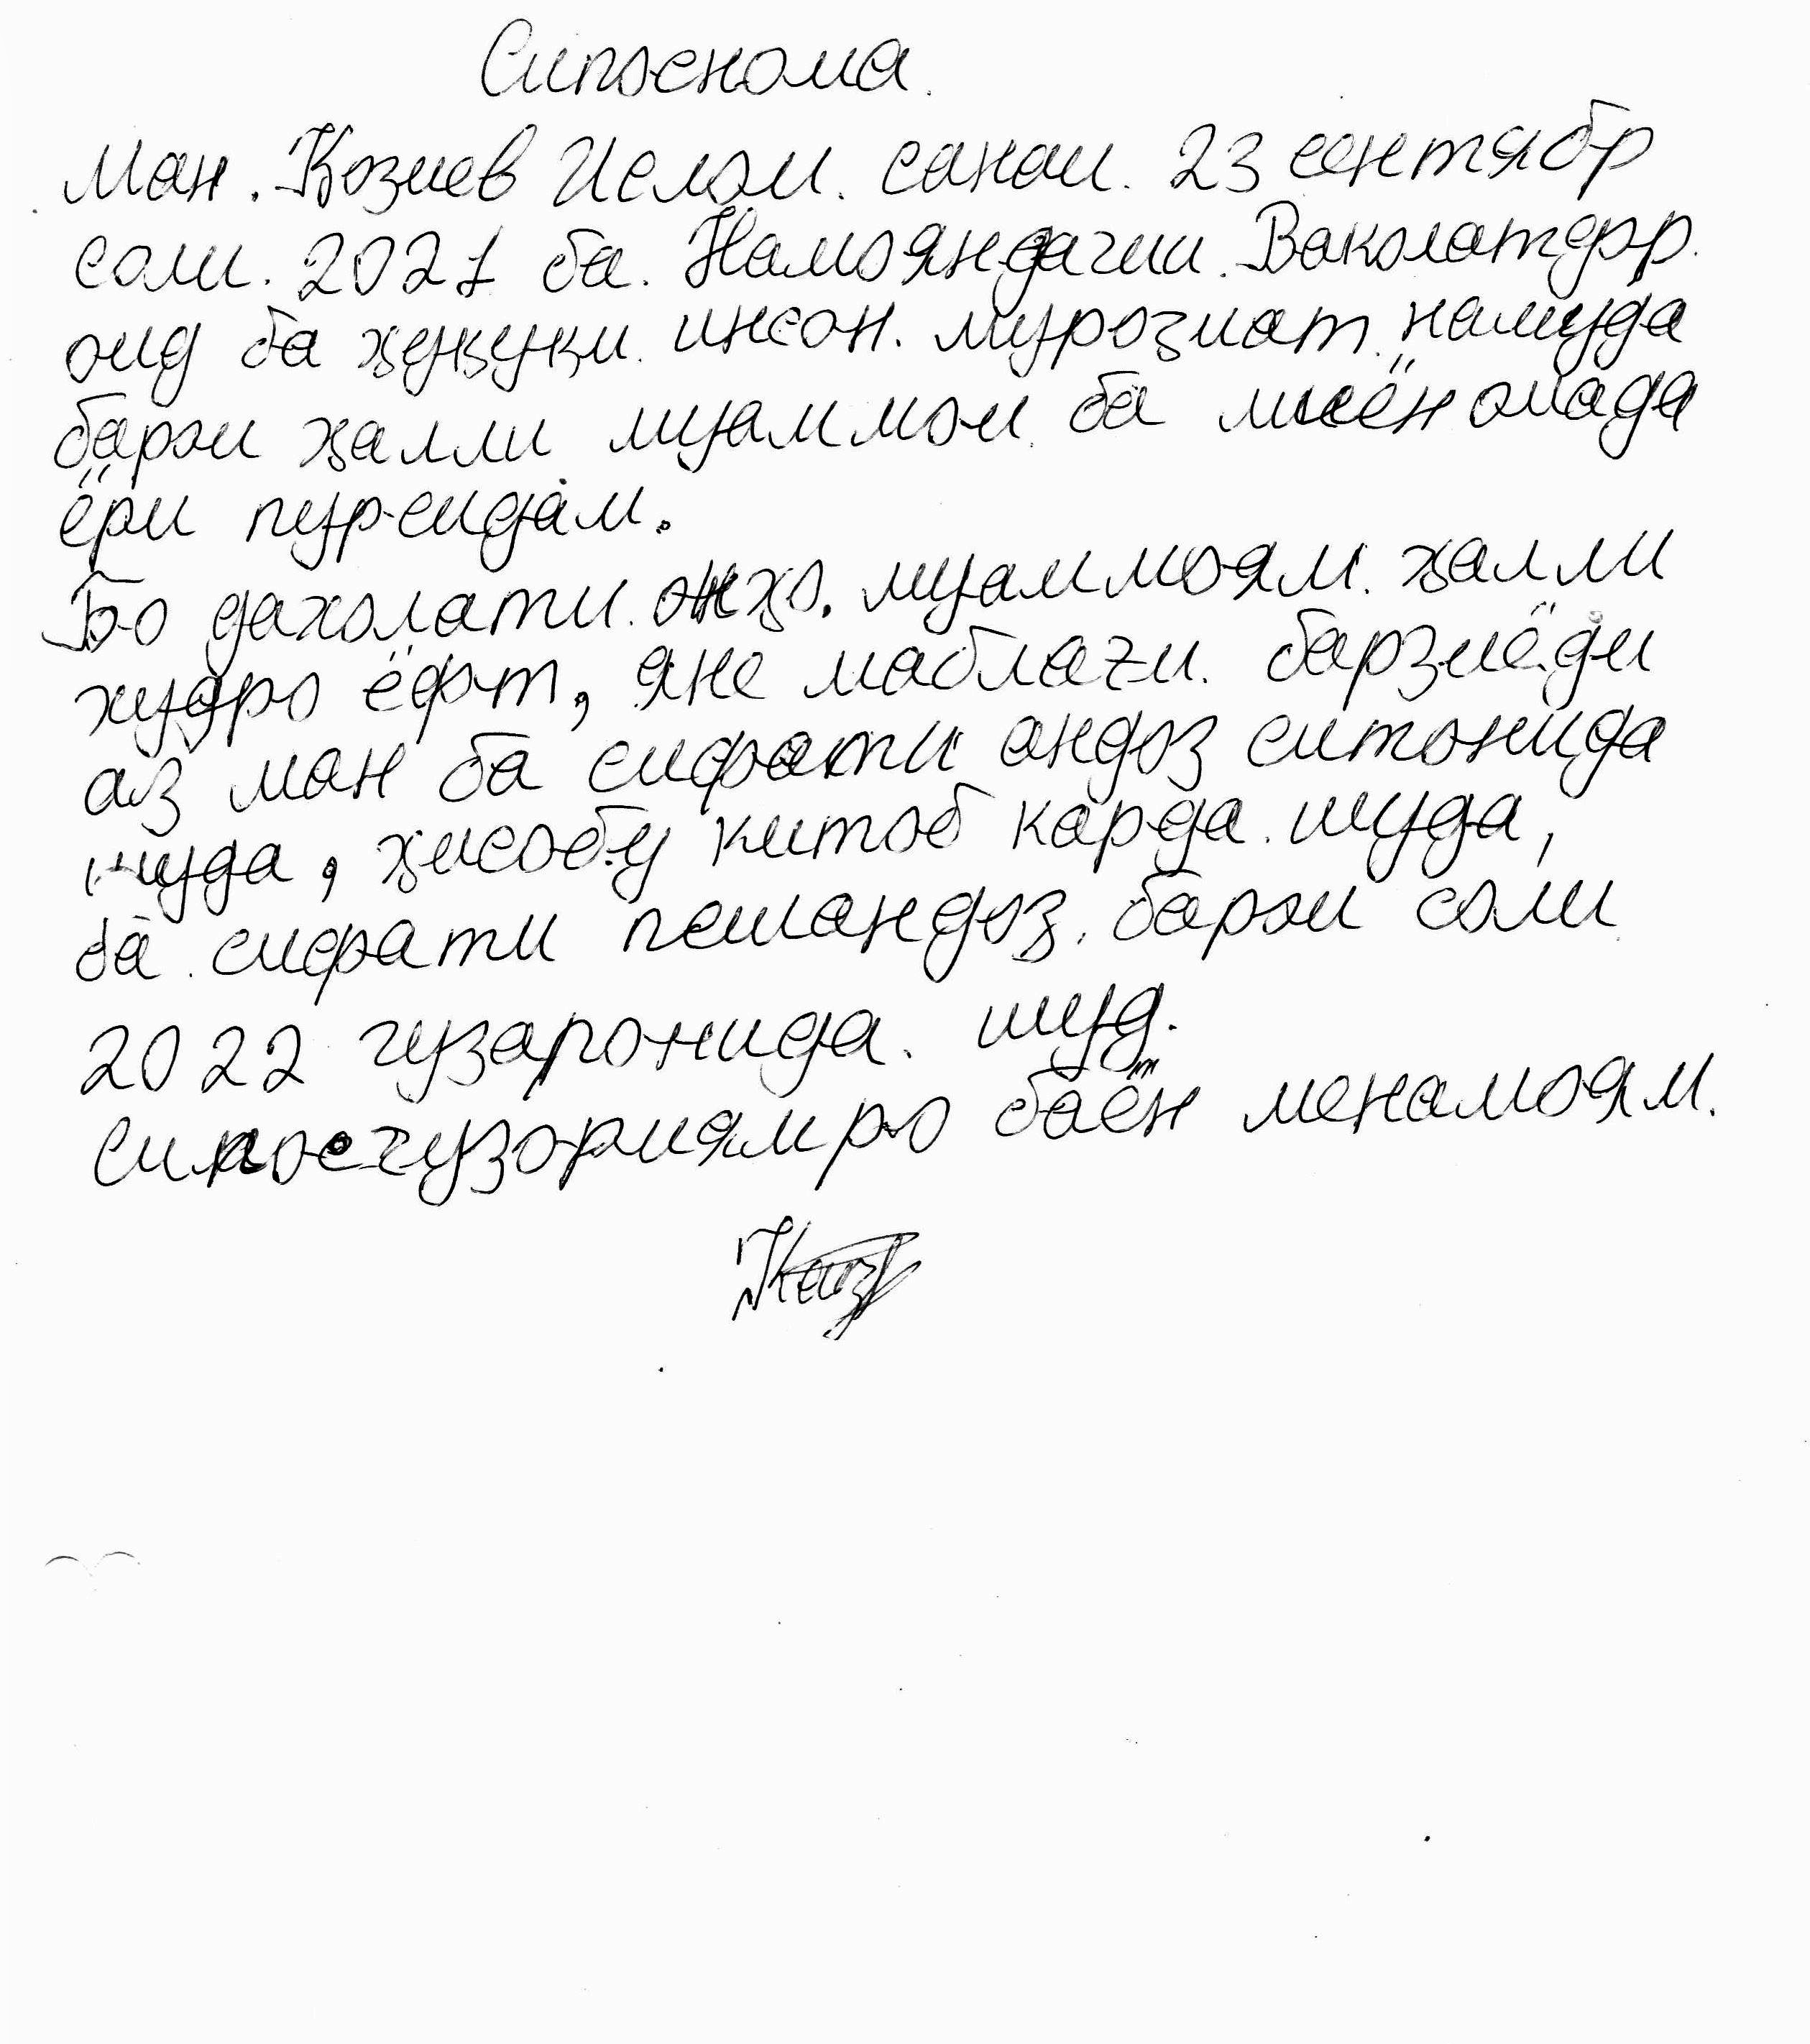 Сипоснома.
Ман. Козиев Ислом. санаи. 23 сентябр
соли. 2021 ба. Намояндагии. Ваколатдор.
оид ба ҳуқуқи. инсон. муроҷиат. намуда
барои ҳалли муаммои. ба миён омада
ёри пурсидам.
Бо дахолати. онҳо. муаммоям. ҳалли
худро ёфт, яне маблағи. барзиёди
аз ман ба сифати андоз ситонида
шуда, ҳисобу китоб карда. шуда,
ба. сифати пешандоз. барои соли
2022 гузаронида. шуд.
Сипосгузориямро баён менамоям.